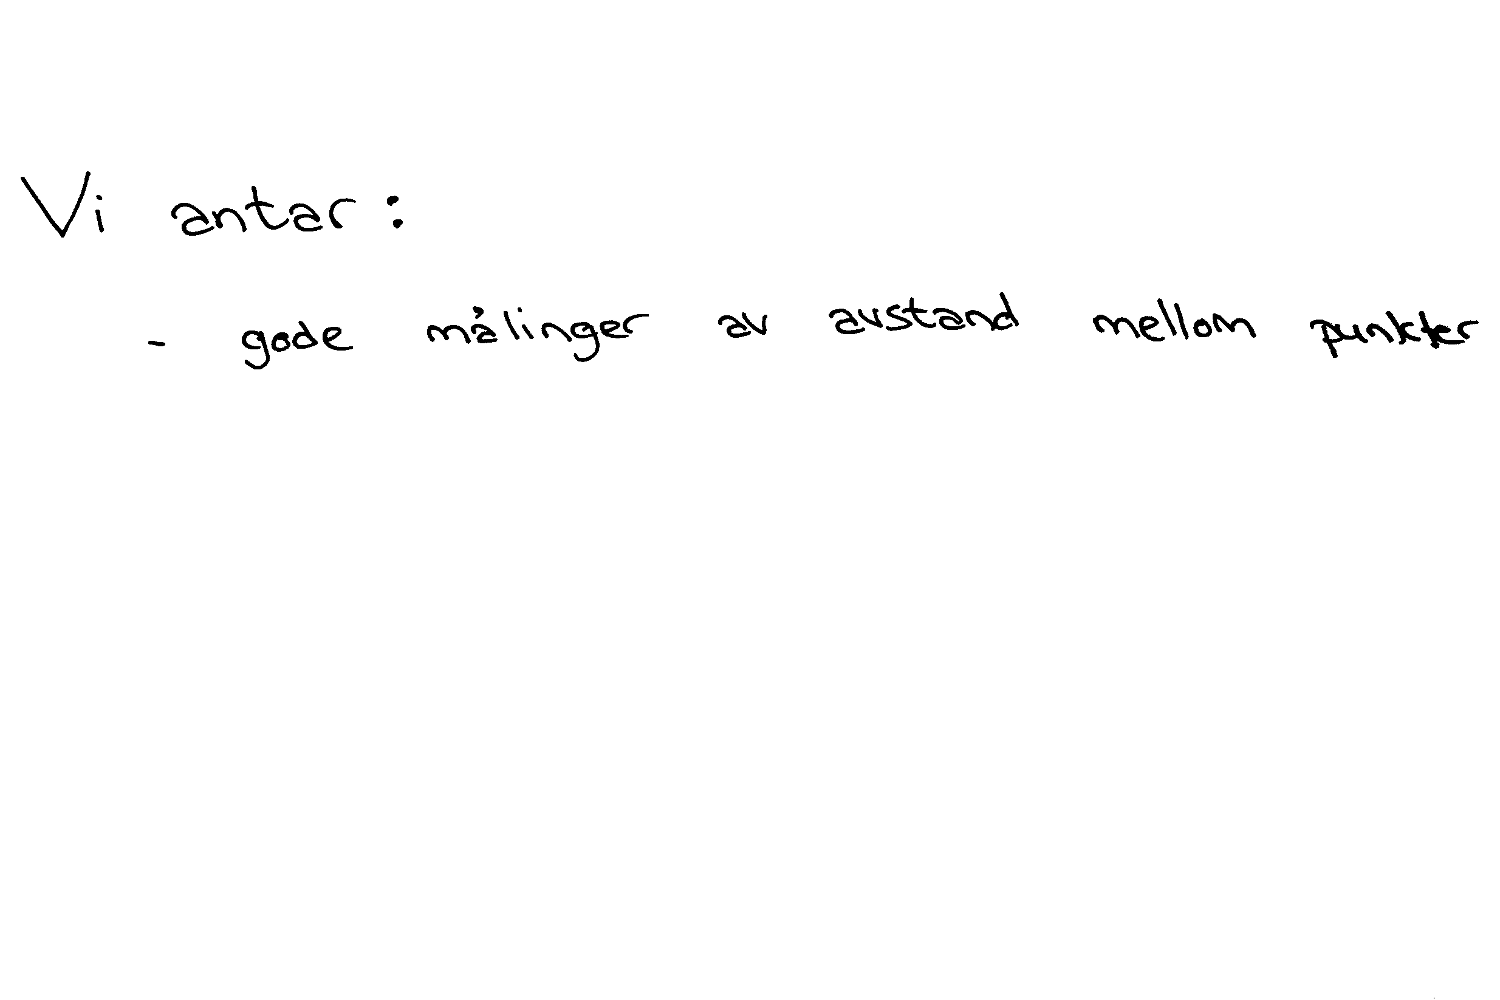 Vi antar:
- gode målinger av avstand mellom punkter